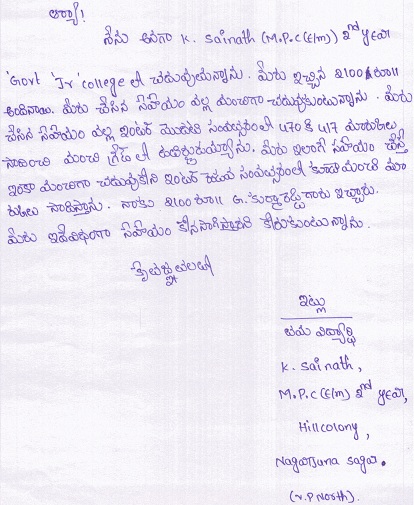 ఆర్యా!
నేను అనగా K. Sainath (M.P.C (E/m) 2nd year
'Govt 'Jr' college లో చదువుతున్నాను. మీరు ఇచ్చిన 2100 రూ॥
అందినాయి. మీరు చేసిన సహాయం వల్ల మంచిగా చదువుకుంటున్నాను. మీరు
చేసిన సహాయం వల్ల ఇంటర్ మొదటి సంవత్సరంలో 470 కి 417 మార్కులు
సాధించి మంచి గ్రేడ్ లో ఉత్తీర్ణుడయ్యాను. మీరు ఇలాగే సహాయం చేస్తే
ఇంకా మంచిగా చదువుకొని ఇంటర్ రెండవ సంవత్సరంలో కూడా మంచి మా
ర్కులు సాధిస్తాను. నాకు 2100 రూ॥ G. గారు ఇచ్చారు.
మీరు ఇదేవిధంగా సహాయం కొనసాగిస్తారని కోరుకుంటున్నాను.
కృతజ్ఞతలతో
ఇట్లు
మీ విద్యార్థి
K. Sainath,
M.P.C (E/m) 2nd year,
Hillcolony,
Nagarjuna sagar.
(V.P North).